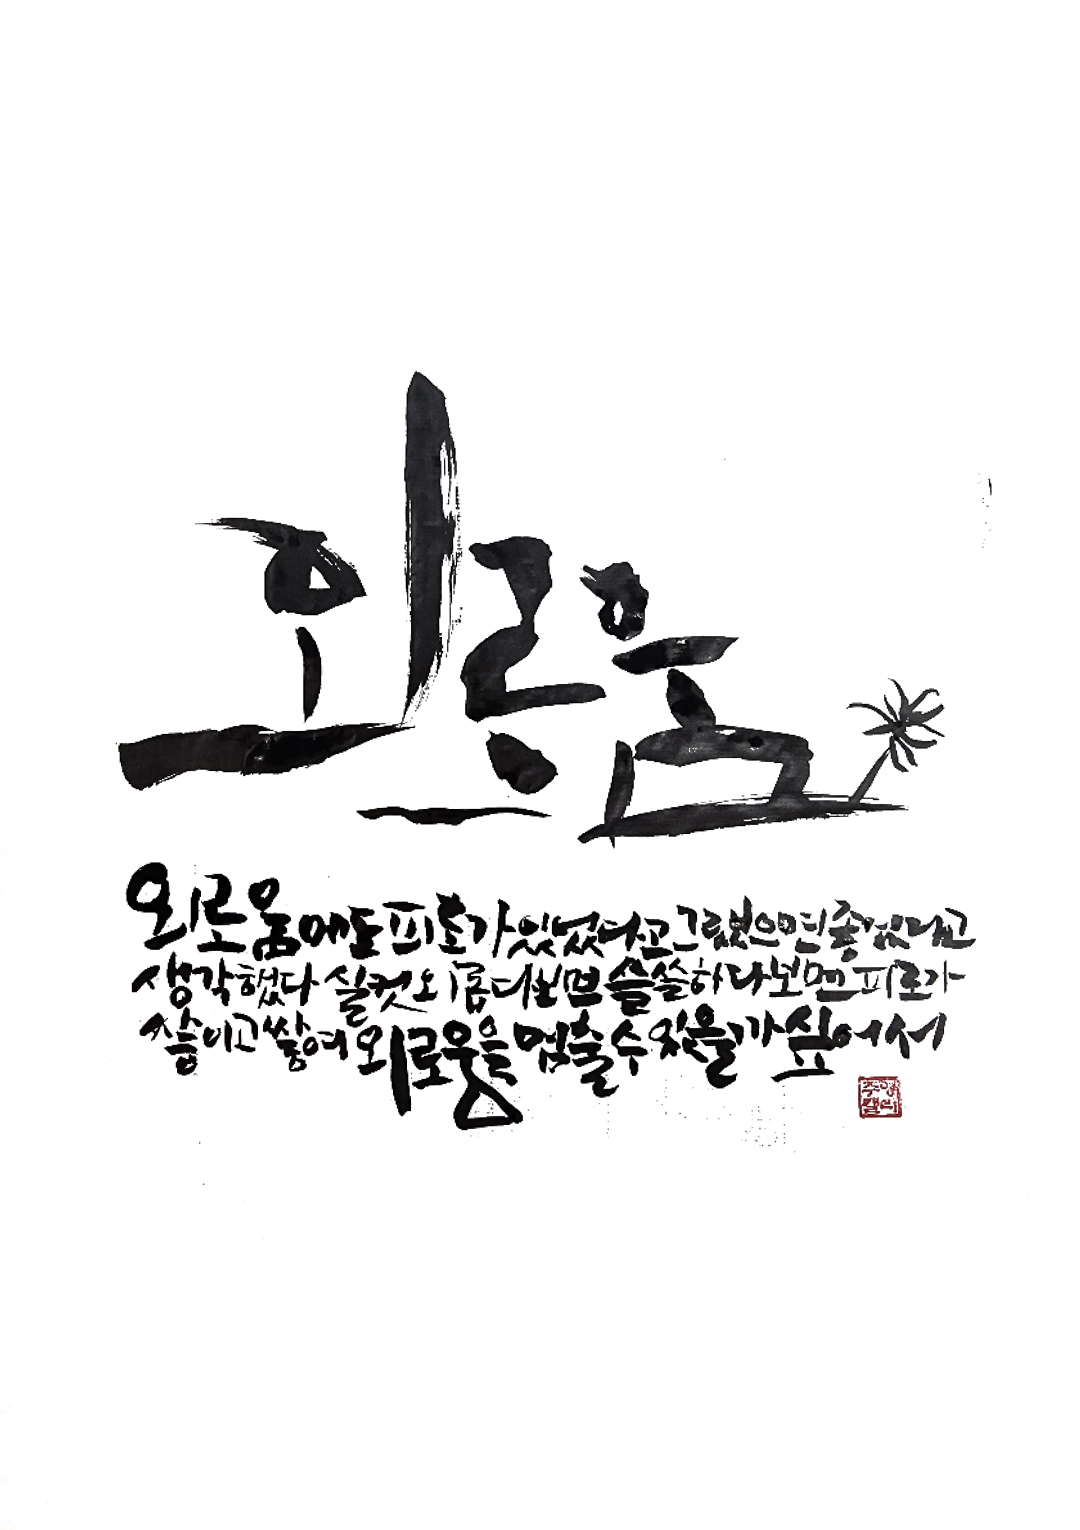 외로움
외로움에도 피로가 있었다고 그랬으면 좋겠다고
생각했다 실컷 외롭다 보면 쓸쓸하다 보면 피로가
쌓이고 쌓여 외로움을 멈출 수 있을까 싶어서